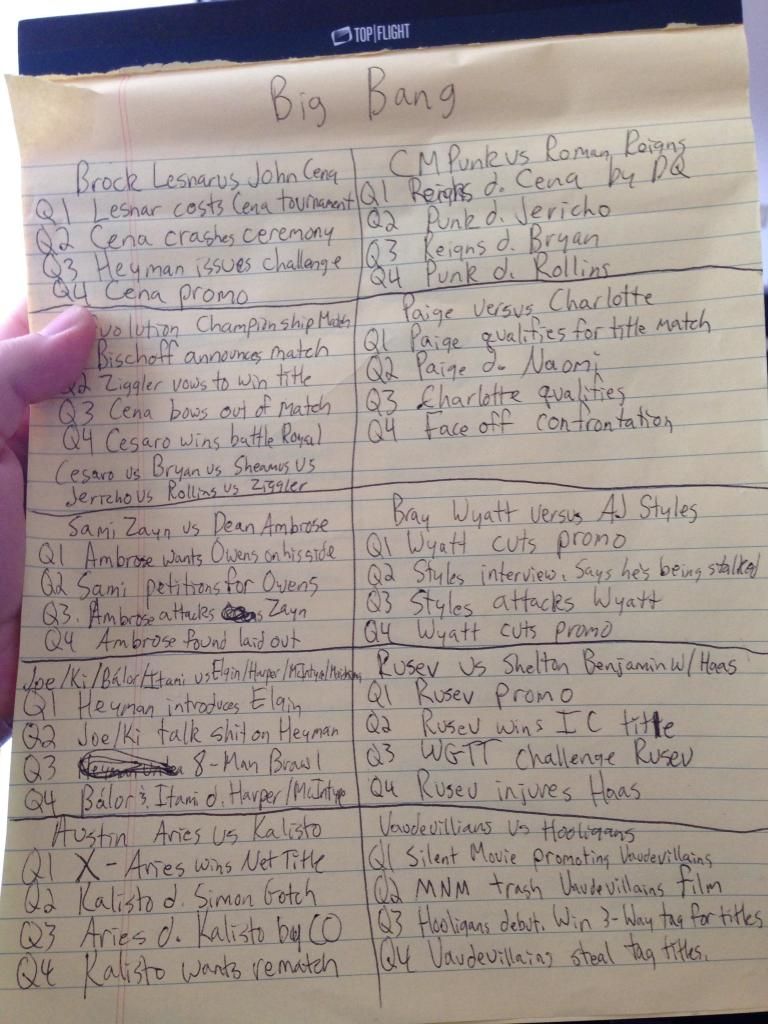 TOP|FLIGHT
Big Bang
Brock Lesnar vs John Cena
Q1 Lesnar costs Cena tournament
Q2 Cena crashes ceremony
Q3 Heyman issues challenge
Q4 Cena promo
CM Punk vs Roman Reigns
Q1 Reigns d. Cena by DQ
Q2 Punk d. Jericho
Q3 Reigns d. Bryan
Q4 Punk d. Rollins
volution Championship Match
Bischoff announces match
Q2 Ziggler vows to win title
Q3 Cena bows out of Match
Q4 Cesaro wins battle Royal
Cesaro vs Bryan vs Sheamus vs
Jericho vs Rollins vs Ziggler
Paige versus Charlotte
Q1 Paige qualifies for title match
Q2 Paige d. Naomi
Q3 Charlotte qualifies
Q4 Face off confrontation
Sami Zayn vs Dean Ambrose
Q1 Ambrose wants Owens on his side
Q2 Sami petitions for Owens
Q3. Ambrose attacks Zayn
Q4 Ambrose found laid out
Bray Wyatt versus AJ Styles
Q1 Wyatt cuts promo
Q2 Styles interview. Says he's being stalked
Q3 Styles attacks Wyatt
Q4 Wyatt cuts promo
Joe/Ki/Bálor/Itami vs Elgin/Harper/McIntyre/
Q1 Heyman introduces Elgin
Q2 Joe/Ki talk shit on Heyman
Q3 8-Man Brawl
Q4 Bálor & Itami d. Harper/McIntyre
Rusev vs Shelton Benjamin w/ Haas
Q1 Rusev promo
Q2 Rusev wins IC title
Q3 WGTT Challenge Rusev
Q4 Rusev injures Haas
Austin Aries vs Kalisto
Q1 X- Aries wins Net Title
Q2 Kalisto d. Simon Gotch
Q3 Aries d. Kalisto by CO
Q4 Kalisto wants rematch
Vaudevillians vs Hooligans
Q1 Silent Movie promoting Vaudevillains
Q2 MNM trash Vaudevillains film
Q3 Hooligans debut. Win 3-Way tag for titles
Q4 Vaudevillains steal tag titles.